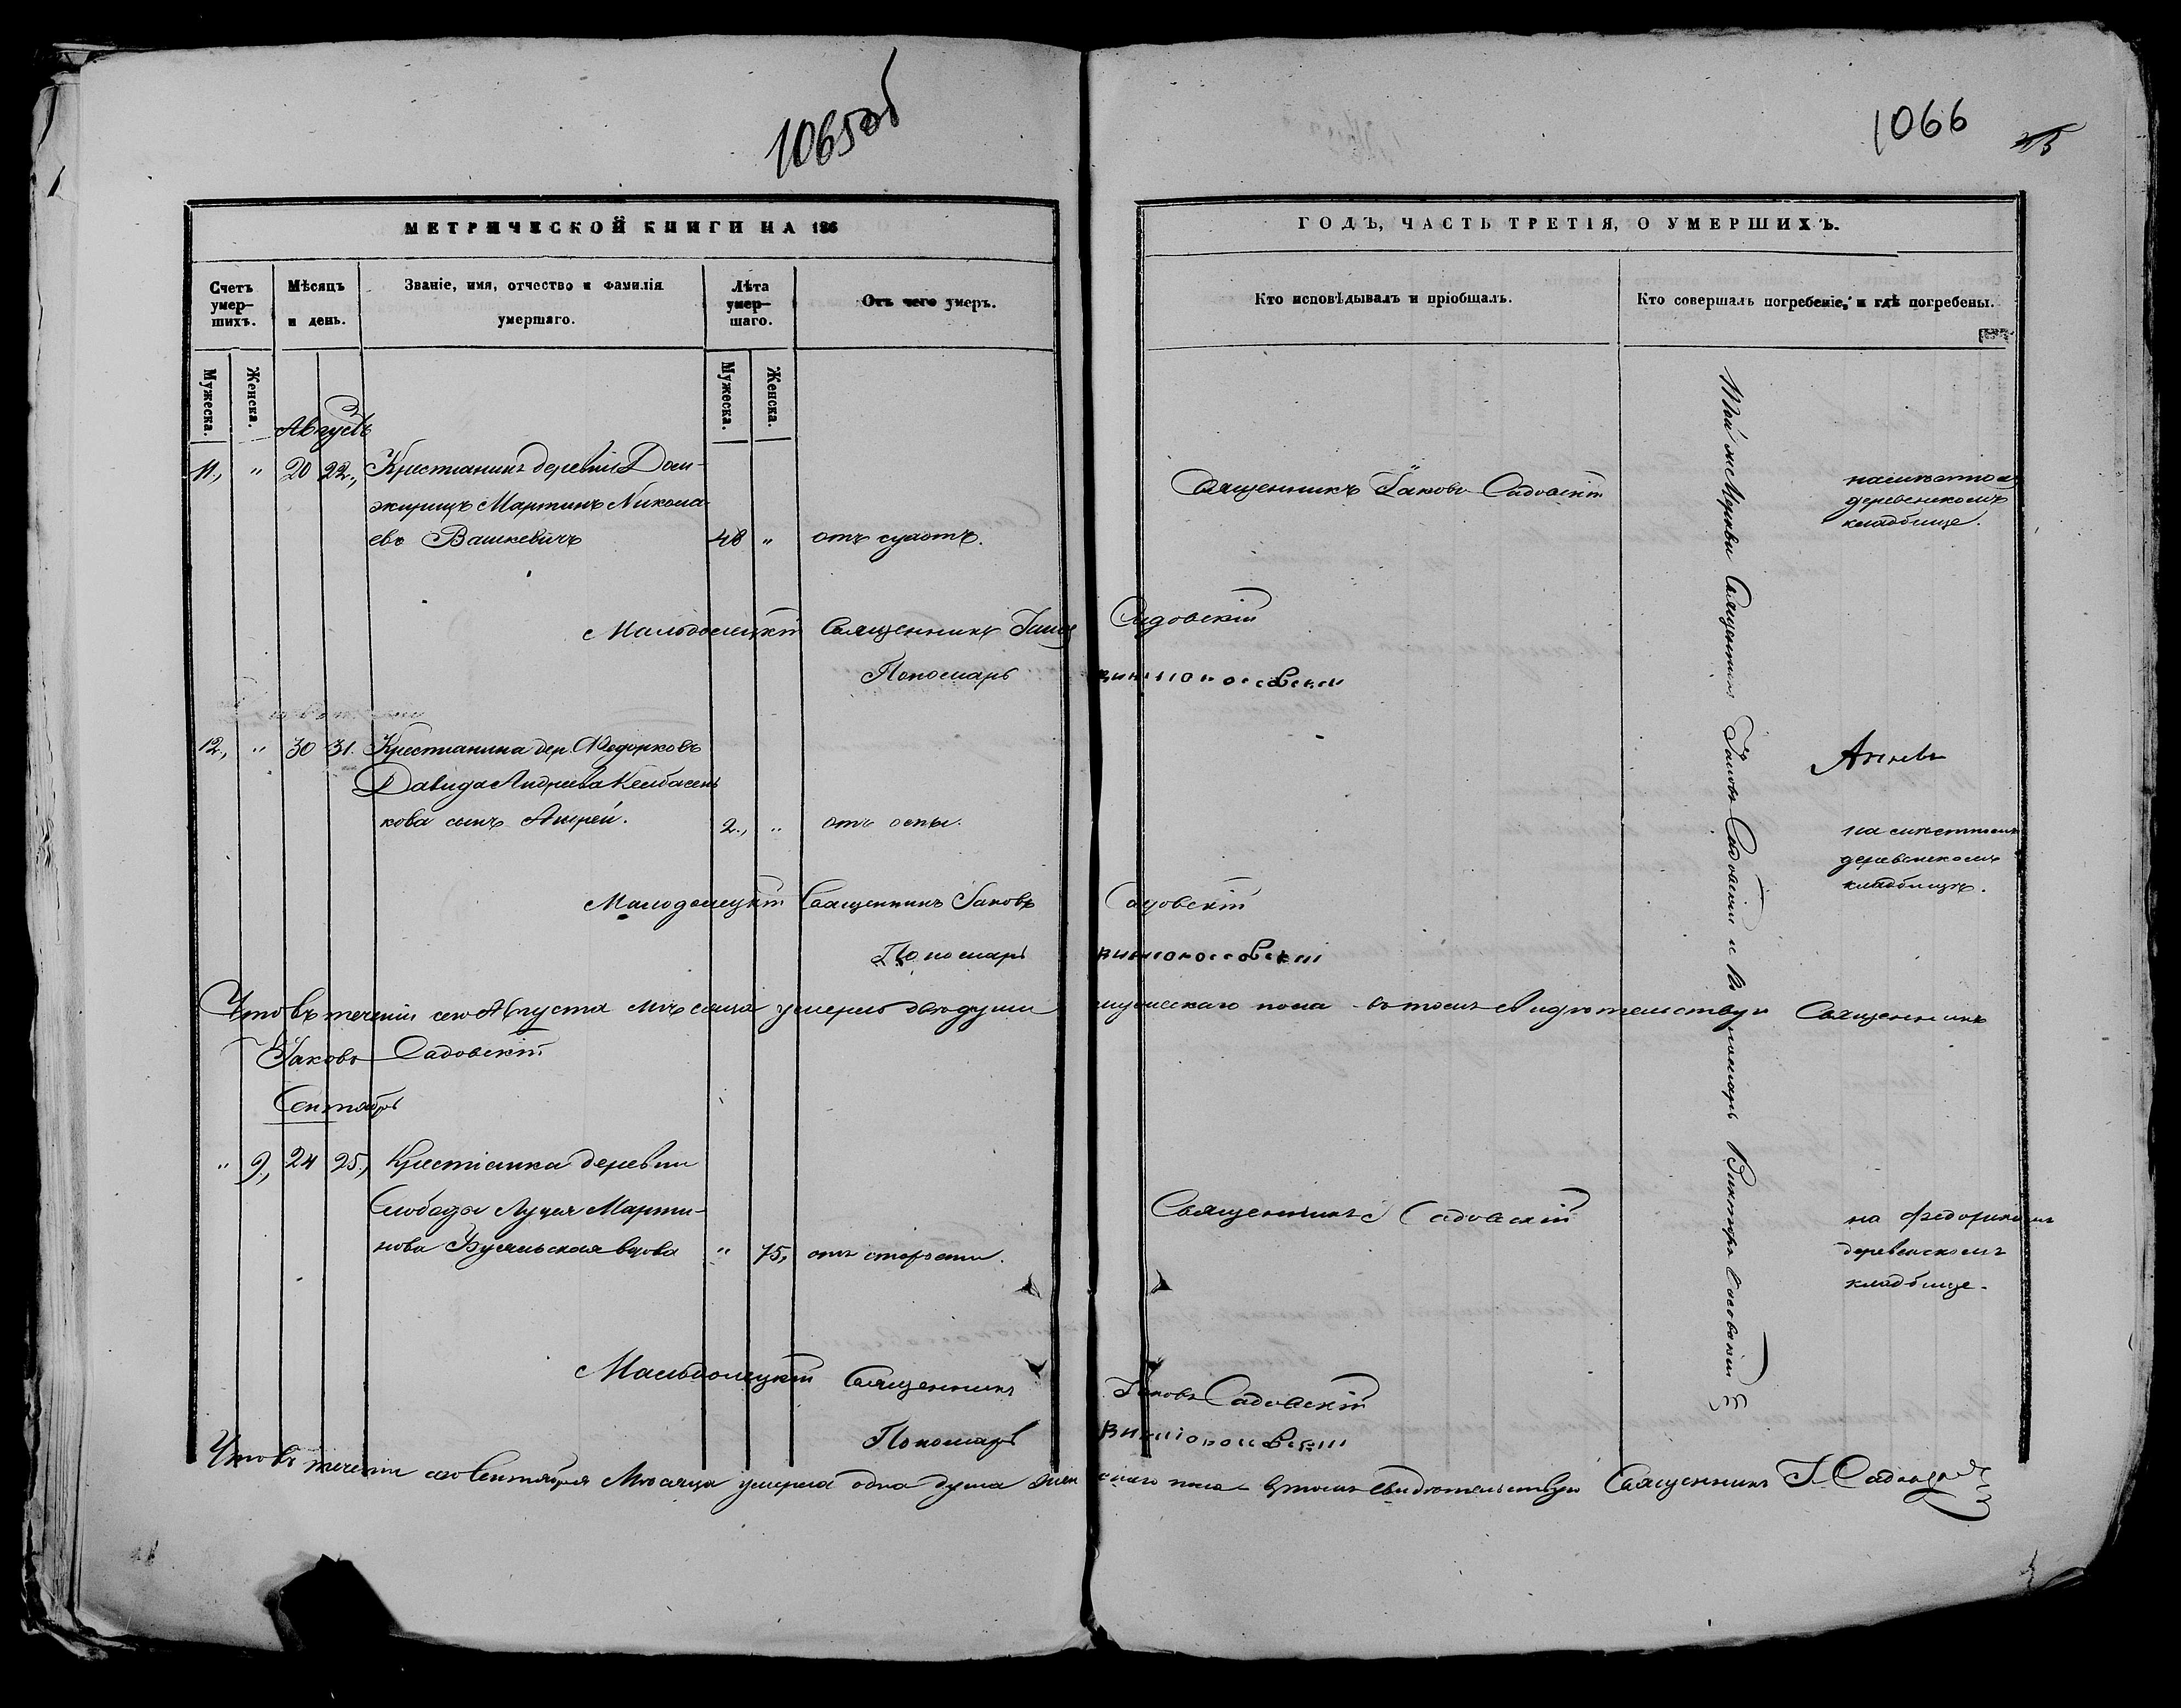 1065об
1066
МЕТРИЧЕСКОЙ КНИГИ НА 186
ГОДЪ, ЧАСТЬ ТРЕТІЯ, О УМЕРШИХЪ.
Счетъ умер-шихъ.
Мѣсяцъ и день.
Званіе, имя, отчество и фамилія умершаго.
Лѣта умер-шаго.
Отъ чего умеръ.
Кто исповѣдывалъ и пріобщалъ.
Кто совершалъ погребеніе, и гдѣ погребены.
Мужеска.
Женска.
Мужеска.
Женска.
Августъ
11., " 20 22., Крестьянинъ деревни Дом-
жирицъ Мартинъ Никола-
евъ Вашкевичъ 48 " отъ сухотъ.
Священникъ Іаковъ Садовскій
деревенскомъ
кладбище.
Священникъ Іаковъ Садовскій
Пономарь
12., " 30 31. Крестьянина дер. Федорковъ
Давида Андреева
кова сынъ Андрей. 2., " отъ оспы.
деревенскомъ
кладбищѣ.
Священникъ Іаковъ Садовскій
Пономарь
Что въ теченіи сего Августа мѣсяца умерло двѣ души мужескаго пола въ томъ свидѣтельствую Священникъ
Іаковъ Садовскій
Сентябрь
" 9., 24 25., Крестьянка деревни
Слобода Луція Марти-
нова вдова " 75, отъ старости.
Священникъ Садовскій
на
деревенскомъ
кладбище.
Священникъ Іаковъ Садовскій
Пономарь
Что въ теченіи сего Сентября Мѣсяца умерла одна душа женскаго пола въ томъ свидѣтельствую Священникъ І. Садовскій
Той же Церкви Священникъ Іаковъ Садовскій и пономарь Викторъ